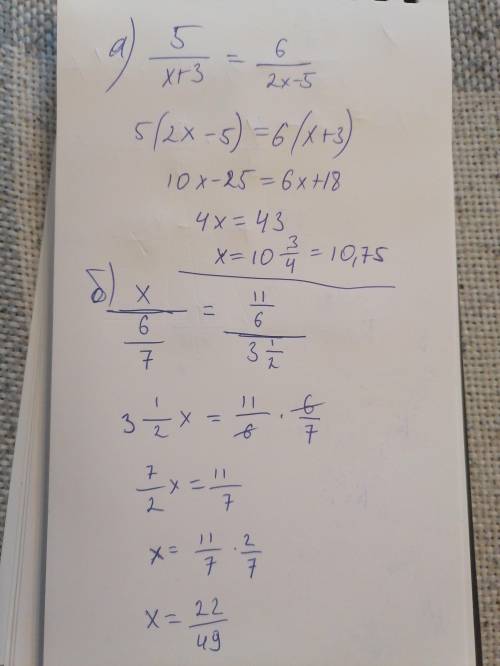 а) 5/(x+3) = 6/(2x-5)
5(2x-5)=6(x+3)
10x-25=6x+18
4x=43
x=10 3/4=10,75
б) x/(6/7) = (11/6)/(3 1/2)
3 1/2 x = 11/6 · 6/7
7/2 x = 11/7
x= 11/7 · 2/7
x= 22/49